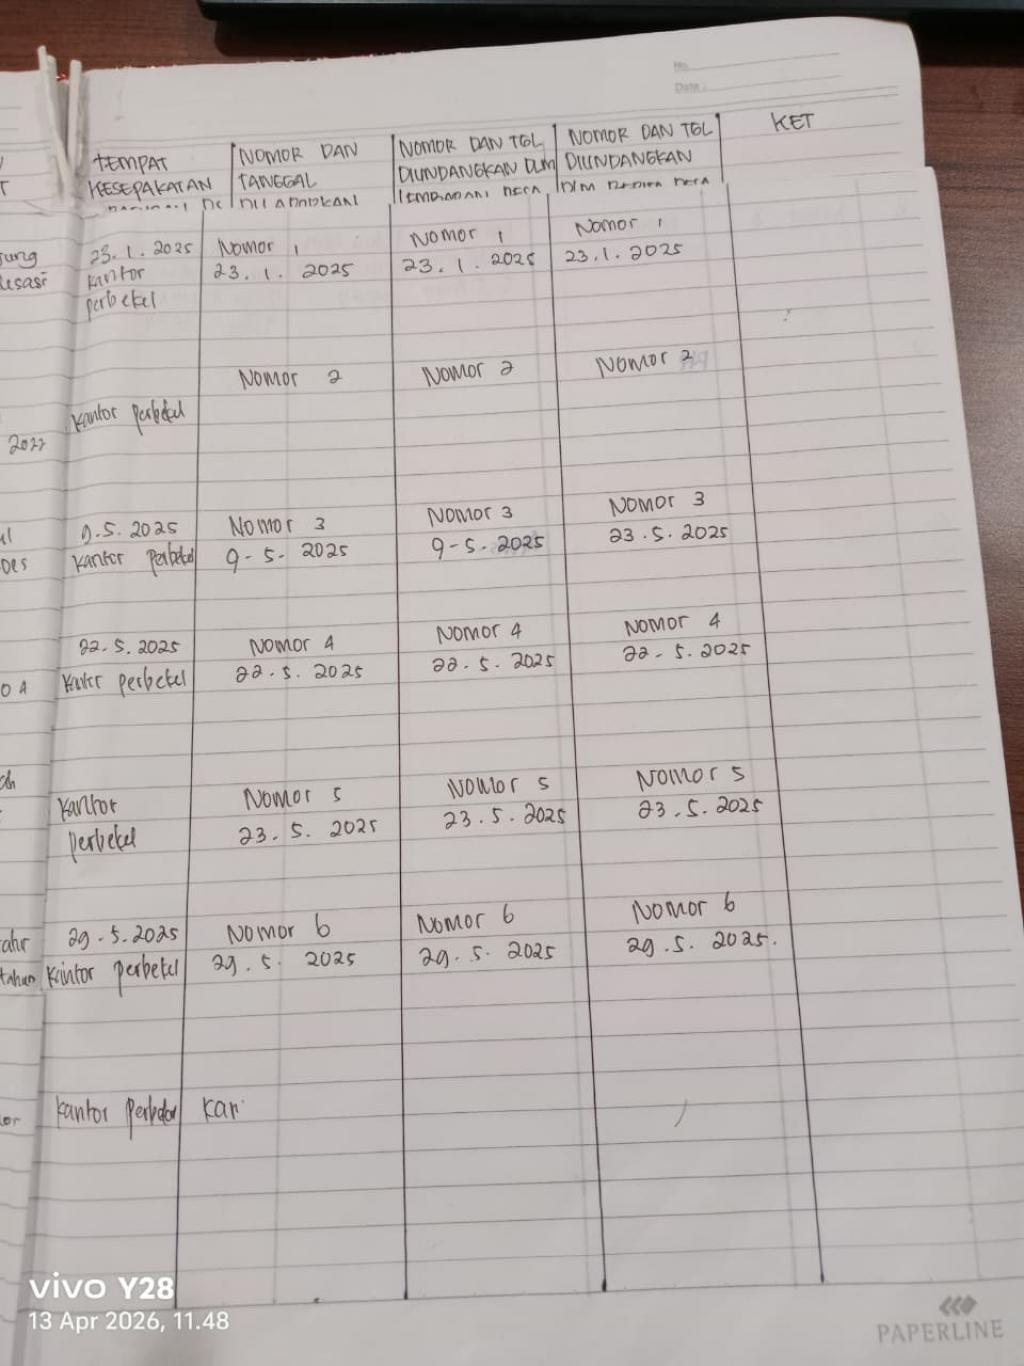 No.
Date :
TEMPAT
KESEPAKATAN
NOMOR DAN
TANGGAL
NOMOR DAN TGL
DIUNDANGKAN DLM
NOMOR DAN TGL
DIUNDANGKAN
KET
23.1.2025 Nomor 1 Nomor 1 Nomor 1
kantor 23.1.2025 23.1.2025 23.1.2025
perbekel
Nomor 2 Nomor 2 Nomor 2
kantor perbekel
9.5.2025 Nomor 3 Nomor 3 Nomor 3
kantor perbekel 9-5-2025 9-5.2025 23.5.2025
22.5.2025 Nomor 4 Nomor 4 Nomor 4
perbekel 22.5.2025 22.5.2025 22-5.2025
kantor Nomor 5 Nomor 5 Nomor 5
perbekel 23.5.2025 23.5.2025 23.5.2025
29-5.2025 Nomor 6 Nomor 6 Nomor 6
tahun kantor perbekel 29.5.2025 29.5.2025 29.5.2025.
kantor Kan
vivo Y28
13 Apr 2026, 11.48
PAPERLINE